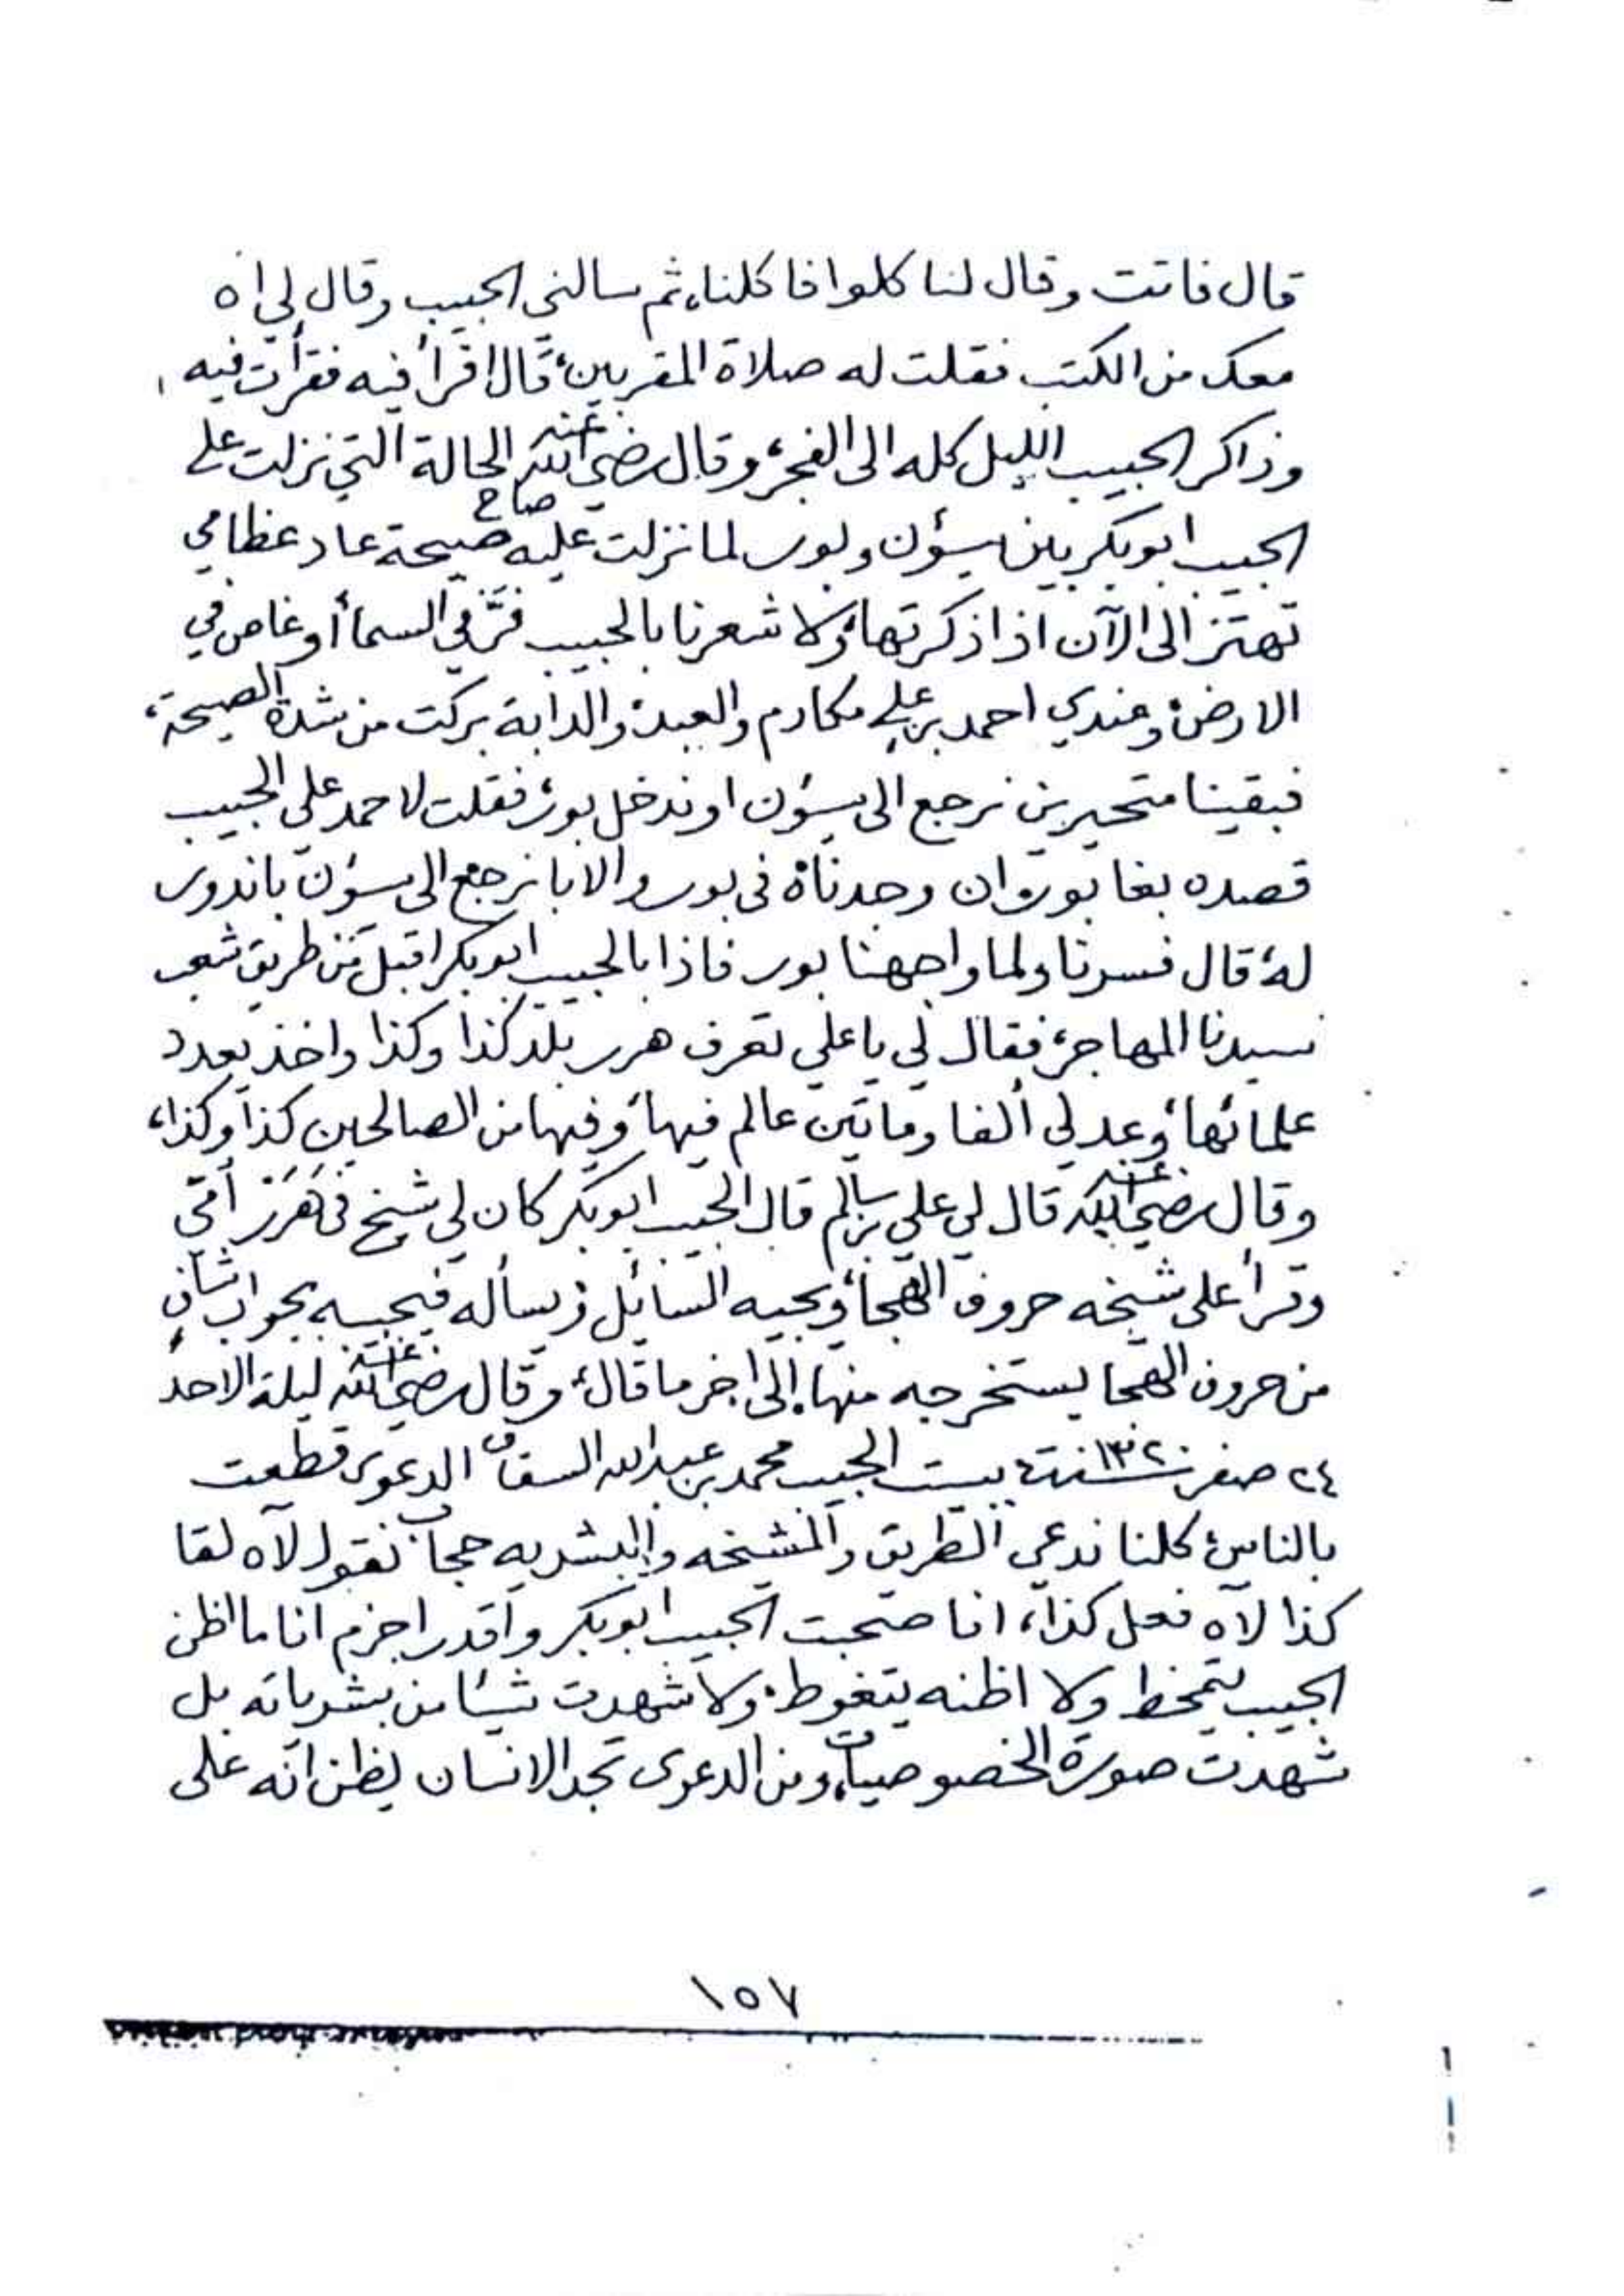 قال فاتت وقال لنا كلوا فاكلنا، ثم سالني الحبيب وقال لي اه
معك من الكتب فقلت له صلاة المقربين، قال اقرأ فيه فقرأت فيه
وذاكر الحبيب الليل كله الى الفجر، وقال رضي الله عنه الحالة التي نزلت على
الحبيب ابوبكر بين سيؤن وبور لما نزلت عليه صاح صيحة عاد عظامي
تهتز الى الآن اذا ذكرتها، ولا شعرنا بالحبيب فز في السما أو غاص في
الارض، وعندي احمد بن علي مكارم والعبد، والدابة بركت من شدة الصيحة،
فبقينا متحيرين نرجع الى سيؤن او ندخل بور، فقلت لاحمد علي الحبيب
قصده بغا بور وان وجدناه في بور والا بانرجع الى سيؤن باندور
له، قال فسرنا ولما واجهنا بور فاذا بالحبيب ابوبكر اقبل من طريق شعب
سيدنا المهاجر، فقال لي يا علي تعرف هرر بلد كذا وكذا واخذ يعدد
علمائها، وعد لي ألفا ومائتين عالم فيها، وفيها من الصالحين كذا وكذا،
وقال رضي الله عنه قال لي علي بن سالم قال الحبيب ابوبكر كان لي شيخ في هرر أمي
وقرأ على شيخه حروف الهجا، ويجيه السائل ويسأله فيجيبه بجواب شاف
من حروف الهجا يستخرجه منها، إلى اخر ما قال، وقال رضي الله عنه ليلة الاحد
٢٤ صفر سنة ١٣٠٢ ببيت الحبيب محمد بن عبدالله السقاف الدعوى قطعت
بالناس، كلنا ندعي الطريق والمشيخه والبشريه حجاب نقول لآه لقا
كذا لآه فعل كذا، انا صحبت الحبيب ابوبكر واقدر اجزم انا ما اظن
الحبيب يتمخط ولا اظنه يتغوط، ولا شهدت شيئا من بشرياته بل
شهدت صورة الخصوصيات، ومن الدعوى تجد الانسان يظن انه على
١٥٧